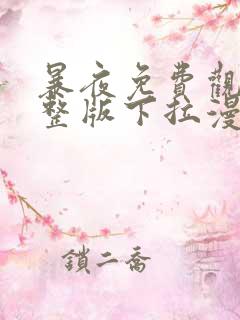 暴夜免費觀
整版下拉漫
鎖二喬